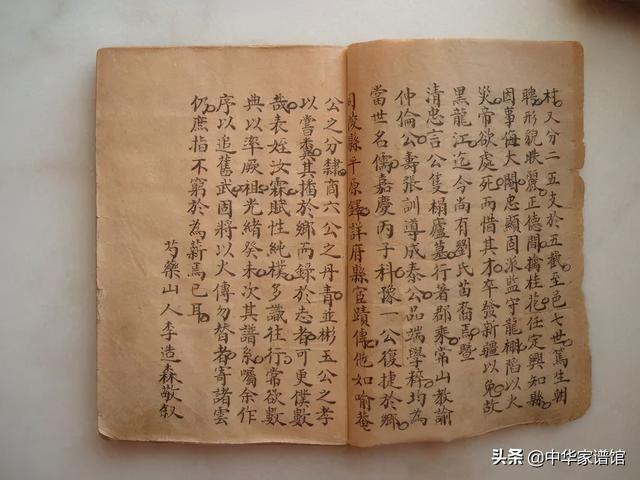 村又分二五支於五截至邑七世篤生朝
聘形貌昳麗正德間擒桂花任定興知縣
因事侮大閹忠顯固派監守龍棚陷以火
災帝欲處死而惜其才卒發新疆以免故
黑龍江迄今尚有劉氏苗裔焉暨
清忠言公隻榻廬墓行署郡乘常山教諭
仲倫公壽張訓導成泰公品端學粹均為
當世名儒嘉慶丙子科豫一公復捷於鄉
陵縣平原鐸詳府縣宦蹟傳他如喻菴
公之分隸商六公之丹青並彬玉公之孝
以嘗糞其播於鄉而錄於志者可更僕數
哉表姪汝霖賦性純樸多識往行常欲數
典以率厥祖光緒癸未次其譜系囑余作
序以追舊武固將以火傳勿替者寄諸雲
仍庶指不窮於為薪焉已耳
芍藥山人李造森敬叙
头条 @中华家谱馆